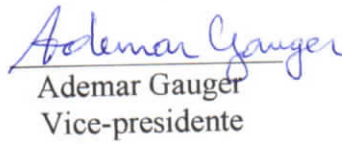 Ademar Gauger
Ademar Gauger
Vice-presidente